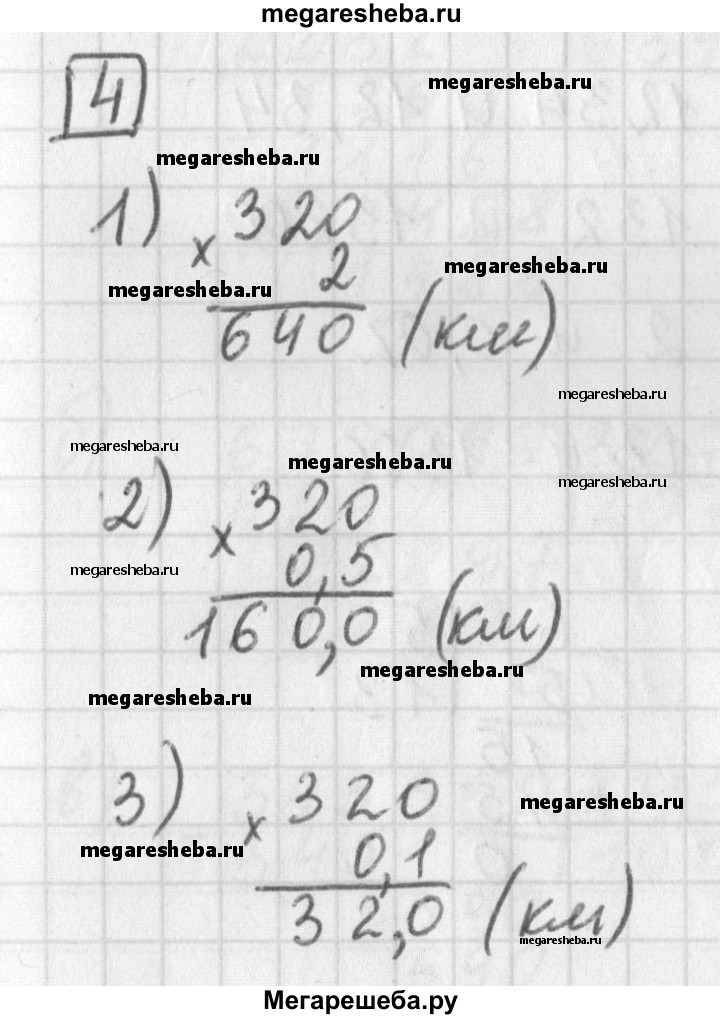 megaresheba.ru
4
megaresheba.ru
megaresheba.ru
1) × 320
2
megaresheba.ru
megaresheba.ru
640 (км)
megaresheba.ru
megaresheba.ru
megaresheba.ru
megaresheba.ru
2) × 320
0,5
megaresheba.ru
160,0 (км)
megaresheba.ru
megaresheba.ru
3) × 320
megaresheba.ru
0,1
megaresheba.ru
32,0 (км)
megaresheba.ru
Мегарешеба.ру